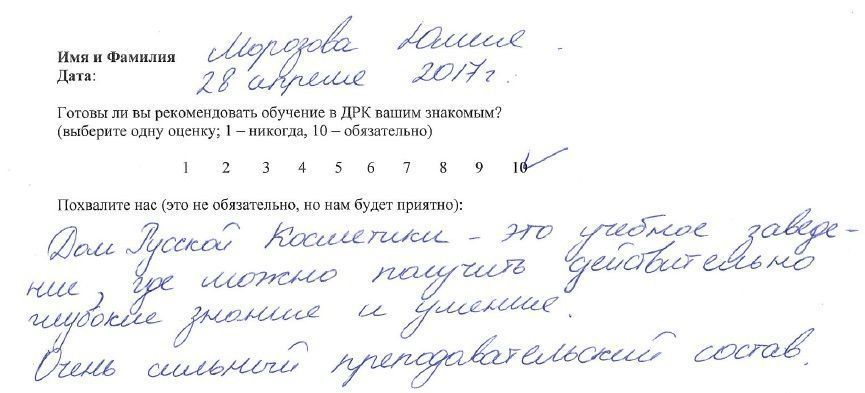 Имя и Фамилия Морозова Юлия.
Дата: 28 апреля 2017г.
Готовы ли вы рекомендовать обучение в ДРК вашим знакомым?
(выберите одну оценку; 1 – никогда, 10 – обязательно)
1 2 3 4 5 6 7 8 9 10
Похвалите нас (это не обязательно, но нам будет приятно):
Дом Русской Косметики – это учебное заведе-
ние, где можно получить действительно
глубокие знание и умение.
Очень сильный преподавательский состав.